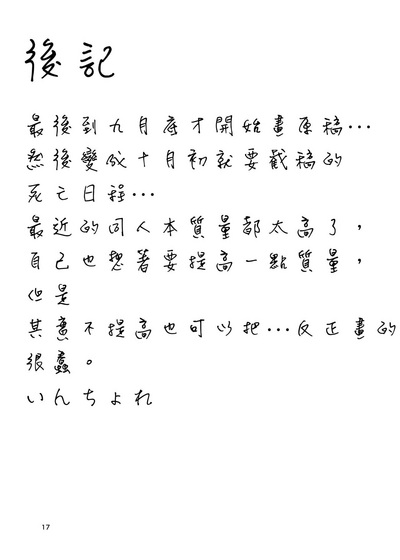 後記
最後到九月底才開始畫原稿…
然後變成十月初就要截稿的
死亡日程…
最近的同人本質量都太高了，
自己也想著要提高一點質量，
但是
其實不提高也可以把…反正畫的
很蠢。
いんちょれ
17